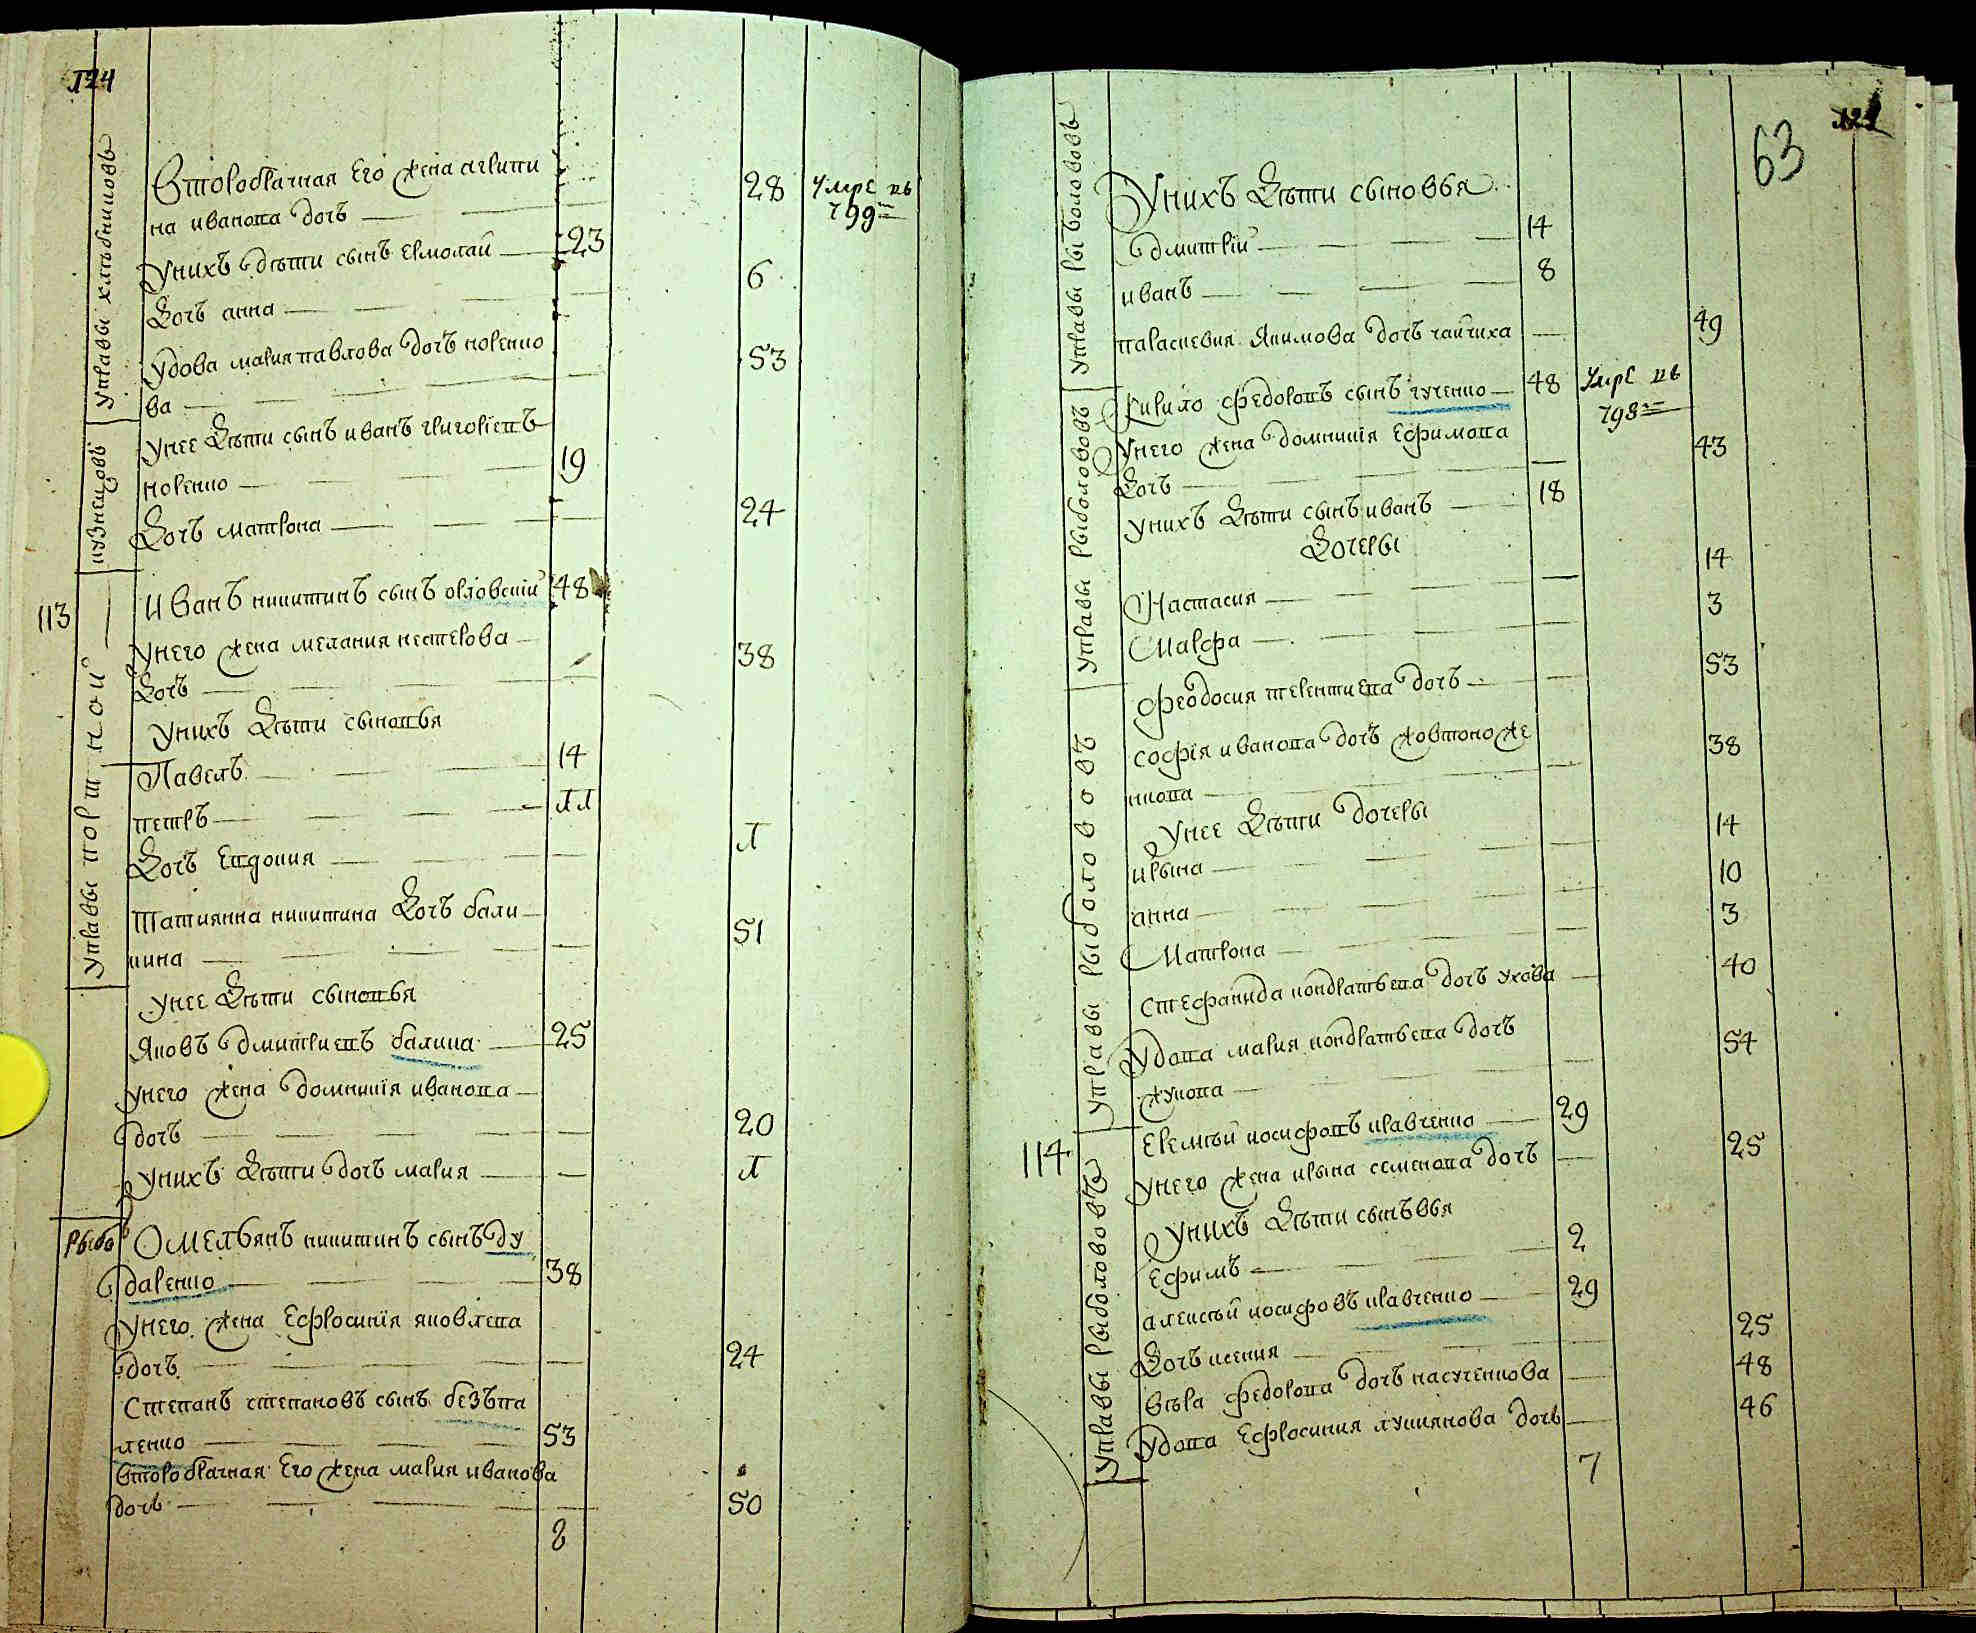 124
Управы хлѣбниковъ
Второбрачная Его жена агрипи
28
умре въ
799
на иванова дочь
Унихъ дѣти сынъ Ермолай
23
Дочь анна
6
Удова мария павлова дочь коренко
53
ва
кузнецовъ
Унее Дѣти сынъ иванъ григориевъ
коренко
19
Дочь матрона
24
113
Управы портной
Иванъ никитинъ сынъ орловский
48
Унего жена мелания нестерова
38
Дочь
Унихъ Дѣти сыновья
Павелъ
14
петръ
11
Дочь Евдокия
1
Татиянна никитина Дочь бали
51
цина
Унее Дѣти сыновья
Яковъ дмитриевъ балица
25
Унего жена домникия иванова
дочь
20
Унихъ Дѣти дочь мария
1
Рыбо
Омельянъ никитинъ сынъ ду
даренко
38
Унего жена Ефросиния яковлева
дочь
24
Степанъ степановъ сынъ безъпа
ленко
53
Второбрачная Его жена мария иванова
дочь
50
8
63
Управы рыболововъ
Унихъ Дѣти сыновья
дмитрий
14
иванъ
8
параскевия Якимова дочь чайчиха
49
Управы рыболововъ
Кирило федоровъ сынъ гученко
48
умре въ
798
Унего жена домникия Ефимова
43
Дочь
Унихъ Дѣти сынъ иванъ
18
Дочеры
Настасия
14
Марфа
3
Управы рыболововъ
Феодосия терентиева дочь
53
софия иванова дочь жовтоноже
38
нкова
Унее Дѣти дочеры
ирына
14
анна
10
Матрона
3
Стефанида кондратьева дочь ухова
40
Удова мария кондратьева дочь
54
жукова
114
Управы рыболововъ
Еремѣй иосифовъ кравченко
29
Унего жена ирына семенова дочь
25
Унихъ Дѣти сынѣвья
Ефимъ
2
алексѣй иосифовъ кравченко
29
Дочь ксения
25
вѣра федорова дочь насученкова
48
Удова Ефросиния лукиянова дочь
46
7